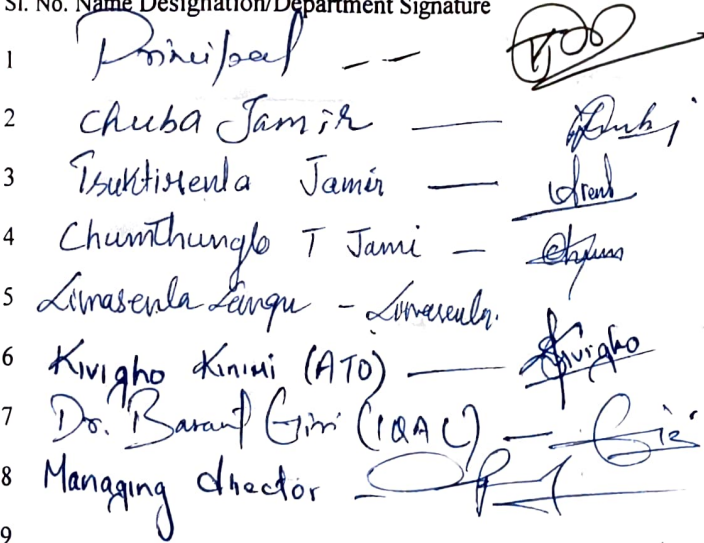 Sl. No. Name Designation/Department Signature
1 Principal --
2 Chuba Jamir —
3 Tsuktirenla Jamir —
4 Chumthunglo T Jami —
5 Limasenla Longu - Limasenla.
6 Kivigho Kinimi (ATO) — Kivigho
7 Dr. Basant Giri (IQAC) — Giri
8 Managing director
9